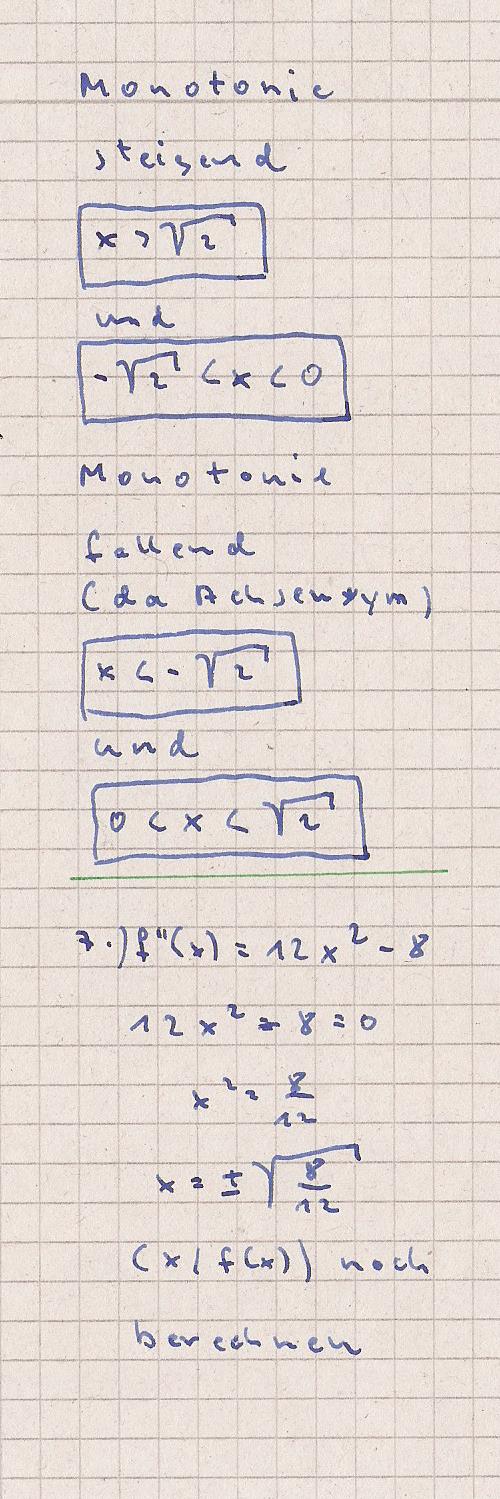 Monotonie
steigend
x > √2
und
-√2 < x < 0
Monotonie
fallend
(da Achsensym)
x < -√2
und
0 < x < √2
7.) f''(x) = 12x² - 8
12x² - 8 = 0
x² = 8/12
x = ± √(8/12)
(x / f(x)) noch
berechnen